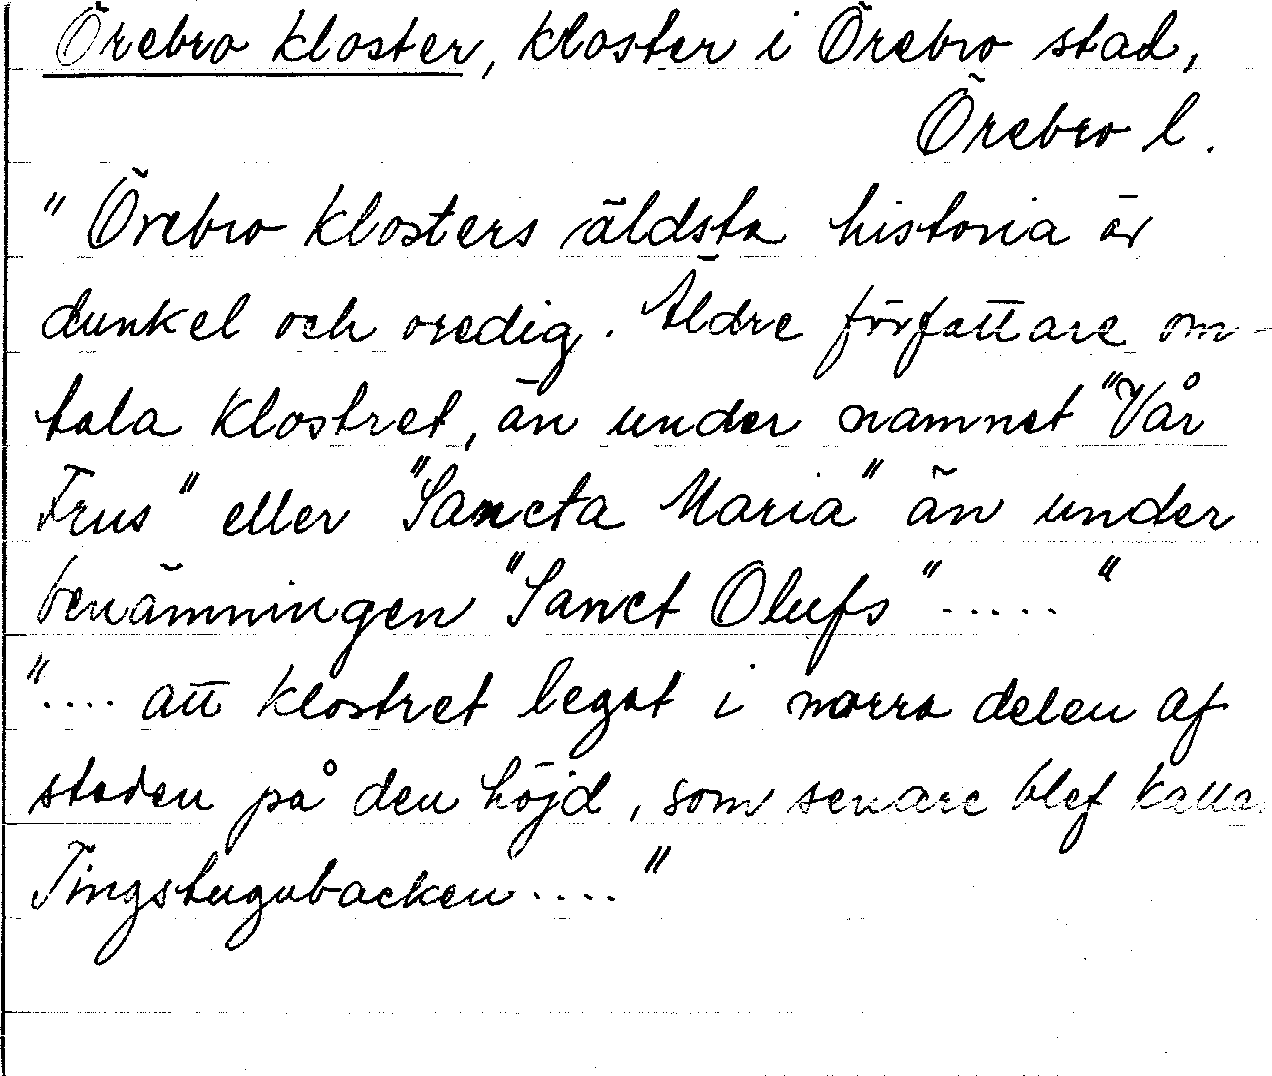 Örebro kloster, kloster i Örebro stad,
Örebro l.
"Örebro klosters äldsta historia är
dunkel och oredig. Äldre författare om-
tala klostret, än under namnet "Vår
Frus" eller "Sancta Maria" än under
benämningen "Sanct Olufs"....."
".... att klostret legat i norra delen af
staden på den höjd, som senare blef kalla
Tingstugubacken...."